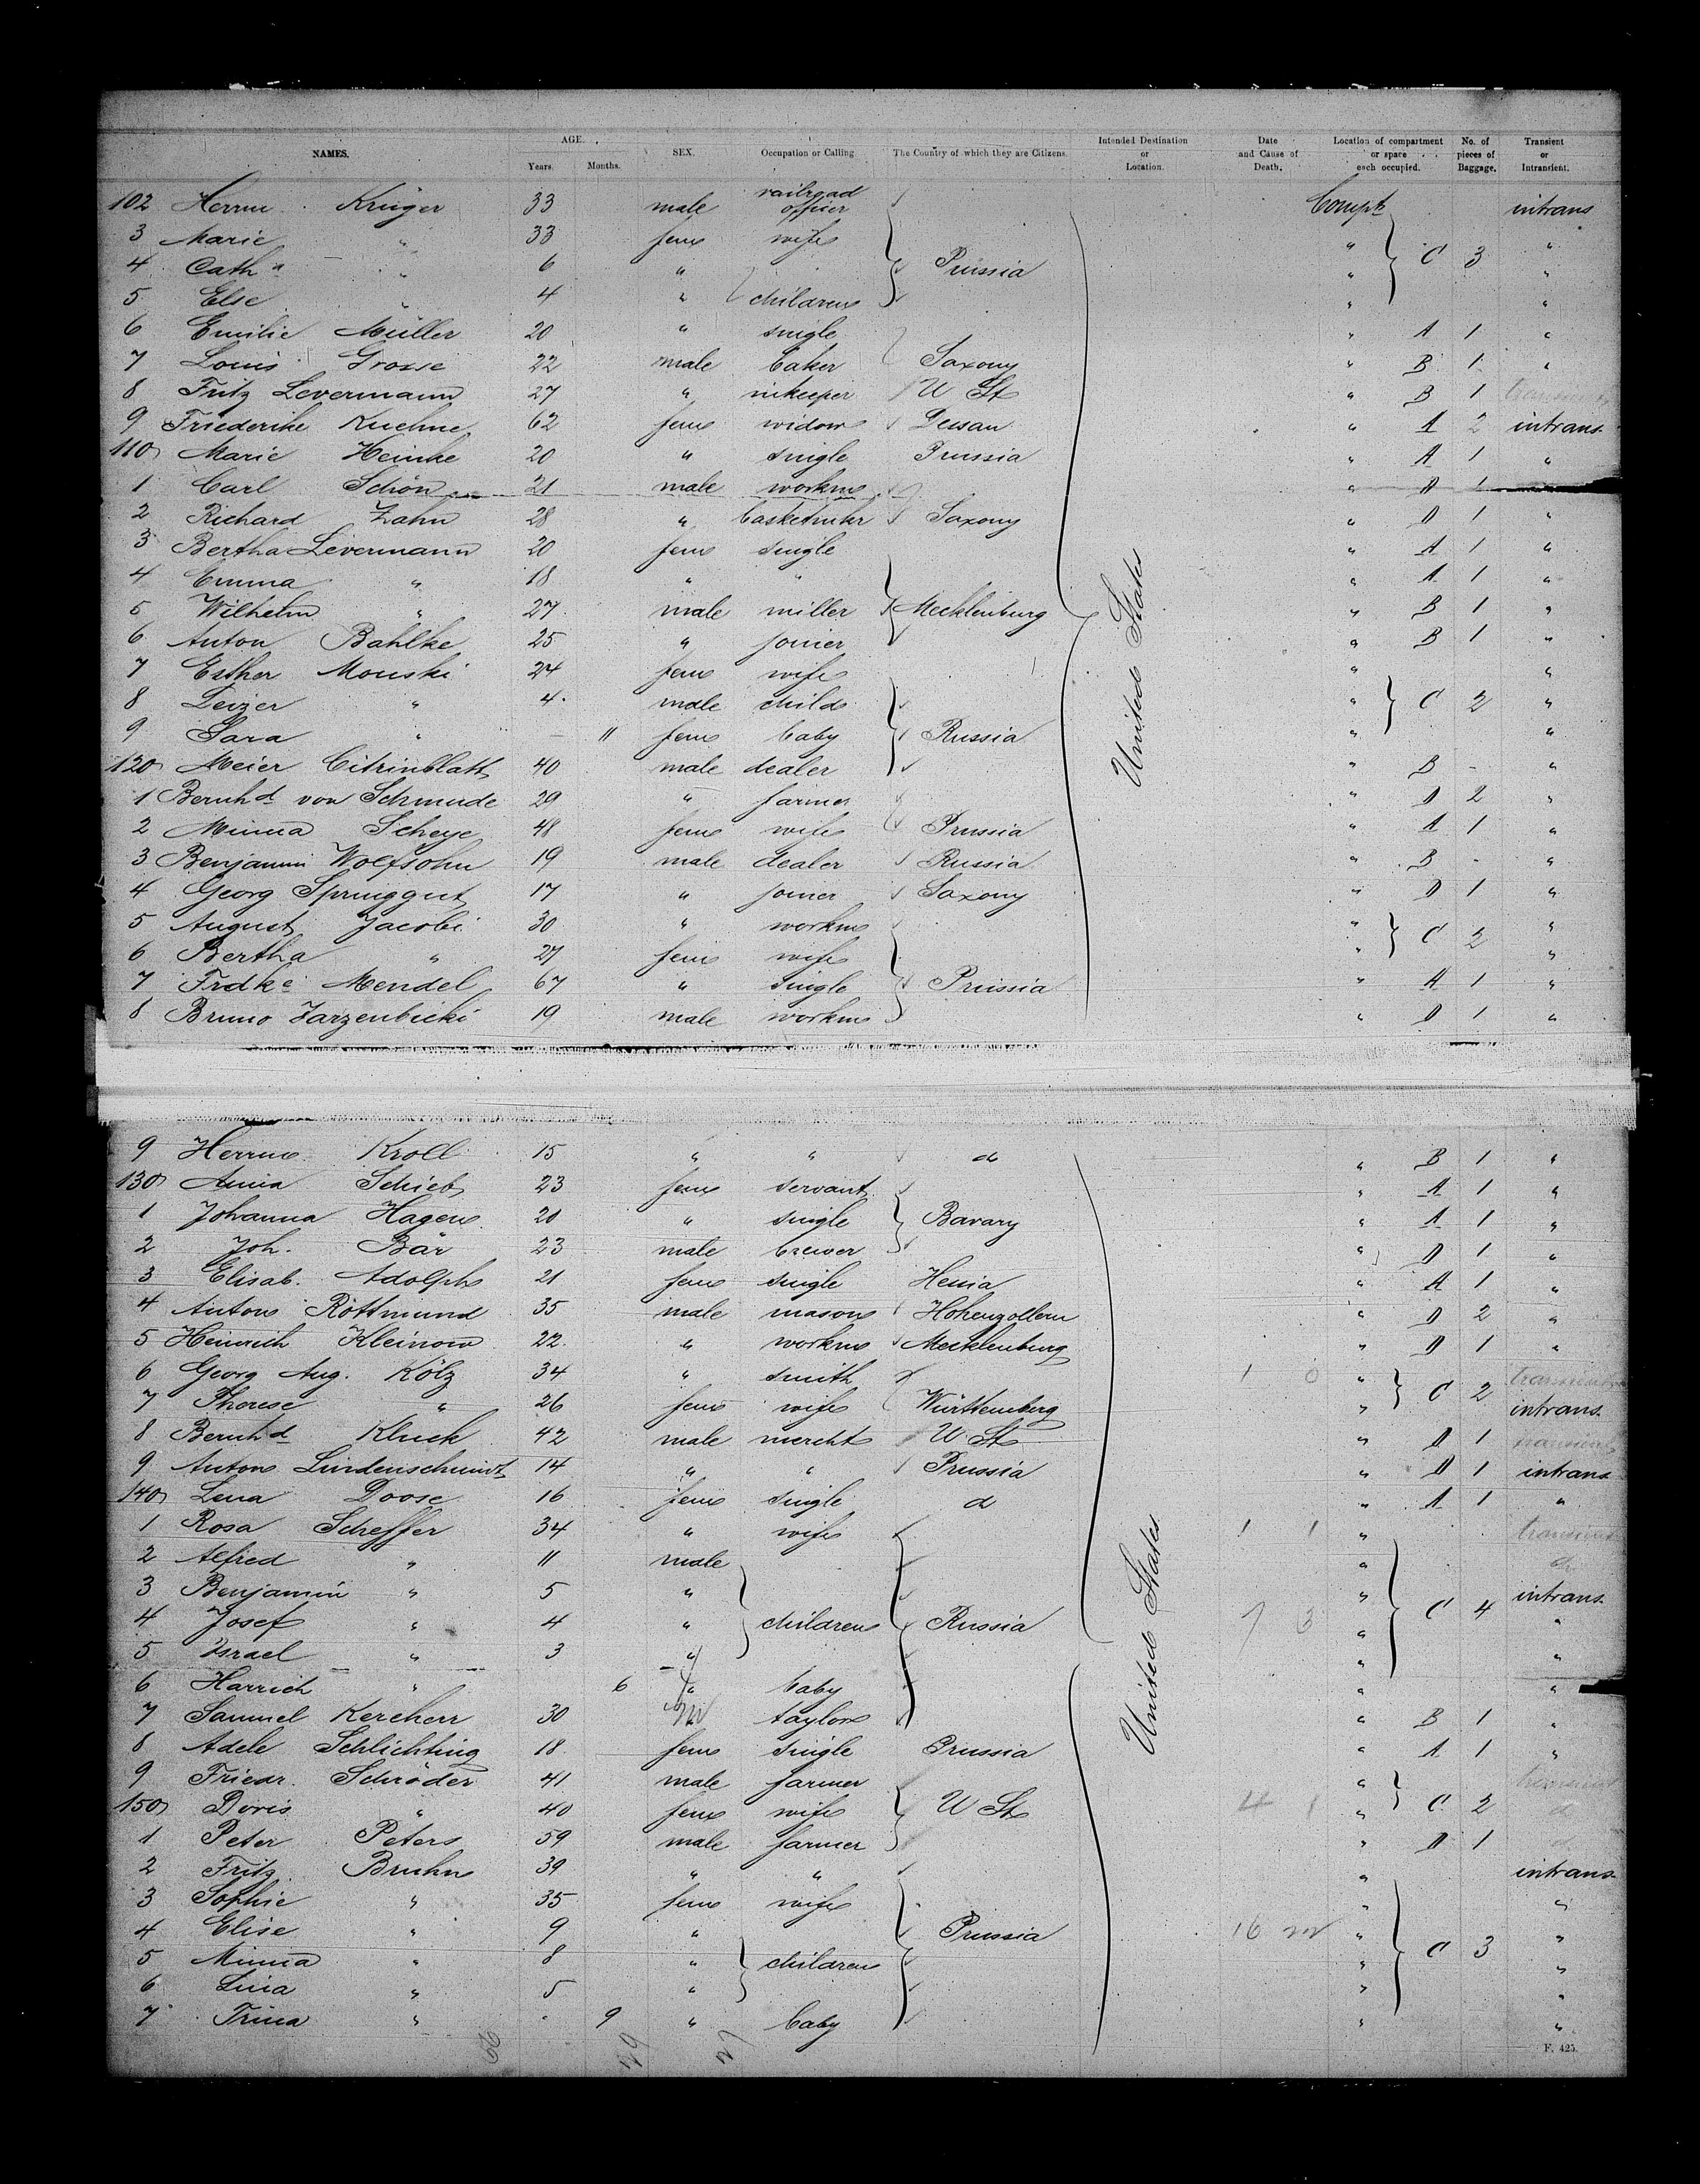 NAMES. AGE. Years. Months. SEX. Occupation or Calling The Country of which they are Citizens. Intended Destination or Location. Date and Cause of Death. Location of compartment or space each occupied. No. of pieces of Baggage. Transient or Intransient.
102 Herrm Krüger 33 male railroad officer Compt intrans
3 Marie " 33 fem wife " "
4 Cath a " 6 " Prussia " C 3 "
5 Else " 4 " children " "
6 Emilie Müller 20 " single " A 1 "
7 Louis Grosse 22 male baker Saxony " B 1 "
8 Fritz Levermann 27 " inkeeper U St " B 1 transient
9 Friederike Kuehne 62 fem widow Dessau " A 2 intrans
110 Marie Heinke 20 " single Prussia " A 1 "
1 Carl Schön 21 male workm " D 1
2 Richard Zahn 28 " basketmkr Saxony " D 1 "
3 Bertha Levermann 20 fem single " A 1 "
4 Emma " 18 " " " A 1 "
5 Wilhelm " 27 male miller Mecklenburg " B 1 "
6 Anton Bahlke 25 " joiner " B 1 "
7 Esther Mouski 24 fem wife " "
8 Leizer " 4 male child " C 2 "
9 Sara " – 11 fem baby Russia " "
120 Meier Citrinblatt 40 male dealer " B - "
1 Bernhd von Schmude 29 " farmer " D 2 "
2 Minna Scheye 48 fem wife Prussia " A 1 "
3 Benjamin Wolfsohn 19 male dealer Russia " B - "
4 Georg Sprunggut 17 " joiner Saxony " D 1 "
5 August Jacobi 30 " workm " C 2 "
6 Bertha " 27 fem wife " "
7 Frdke Mendel 67 " single Prussia " A 1 "
8 Bruno Zarzenbicki 19 male workm " D 1 "
9 Herrm Kroll 15 " " do " B 1 "
130 Anna Schieb 23 fem servant " A 1 "
1 Johanna Hagen 20 " single Bavary " A 1 "
2 Joh. Bär 23 male brewer " D 1 "
3 Elisab. Adolph 21 fem single Hessia " A 1 "
4 Anton Röttmund 35 male mason Hohenzollern " D 2 "
5 Heinrich Kleinow 22 " workm Mecklenburg " D 1 "
6 Georg Aug. Kölz 34 " smith 1 0 " C 2 transient
7 Therese " 26 fem wife Württemberg " intrans
8 Bernhd Kluck 42 male mercht U St " D 1 transient
9 Anton Lindenschmidt 14 " " Prussia " D 1 intrans
140 Lena Doose 16 fem single d " A 1 "
1 Rosa Scheffer 34 " wife 1 1 " transient
2 Alfred " 11 male " do
3 Benjamin " 5 " " intrans
4 Josef " 4 " children Russia 7 3 " C 4 "
5 Israel " 3 " " "
6 Harrich " 6 " baby " "
7 Samuel Kercherr 30 M taylor " B 1 "
8 Adele Schlichting 18 fem single Prussia " A 1 "
9 Friedr. Schröder 41 male farmer " transient
150 Doris " 40 fem wife U St 4 1 " C 2 d
1 Peter Peters 59 male farmer " D 1
2 Fritz Bruhn 39 " " " intrans
3 Sophie " 35 fem wife " "
4 Elise " 9 " Prussia 16 " "
5 Minna " 8 " children " C 3 "
6 Lina " 5 " " "
7 Trina " 9 " baby " "
United States
United States
F. 425.